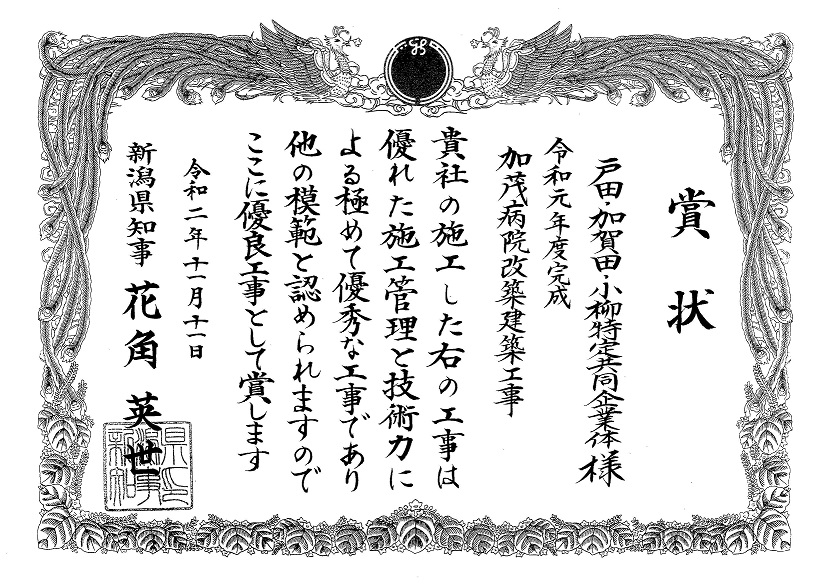 賞状
戸田・加賀田・小柳特定共同企業体様
令和元年度完成
加茂病院改築建築工事
貴社の施工した右の工事は
優れた施工管理と技術力に
よる極めて優秀な工事であり
他の模範と認められますので
ここに優良工事として賞します
令和二年十一月十一日
新潟県知事 花角英世